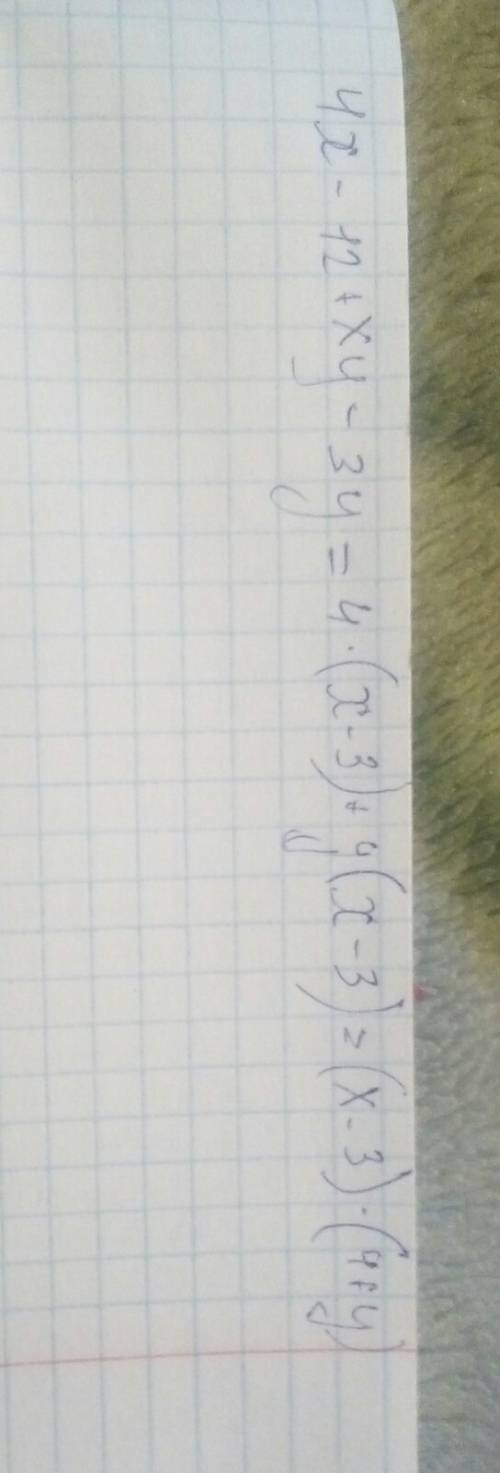 4x - 12 + xy - 3y = 4 · (x - 3) + y (x - 3) = (x - 3) · (4 + y)